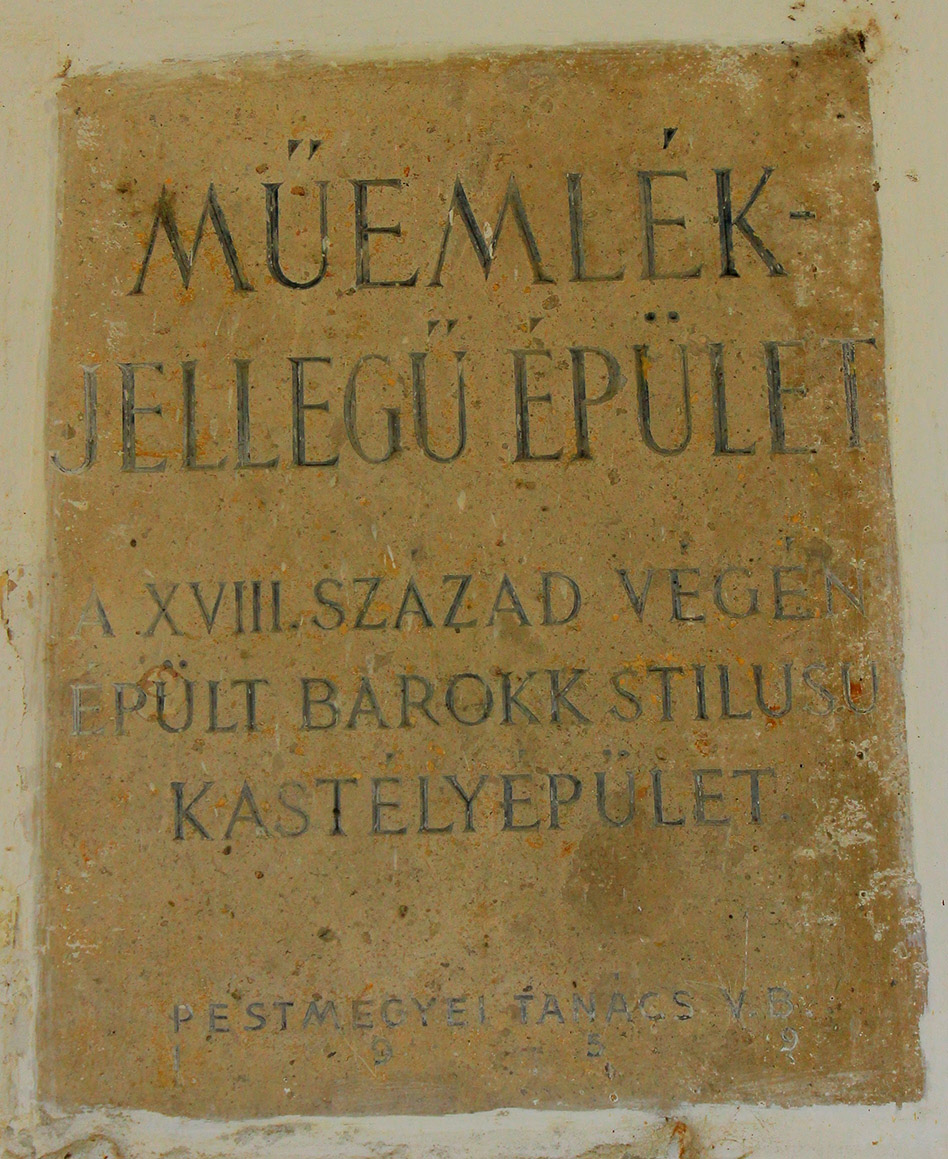 MŰEMLÉK-
JELLEGŰ ÉPÜLET
A XVIII. SZÁZAD VÉGÉN
ÉPÜLT BAROKK STILUSU
KASTÉLYÉPÜLET.
PESTMEGYEI TANÁCS V.B.
1959